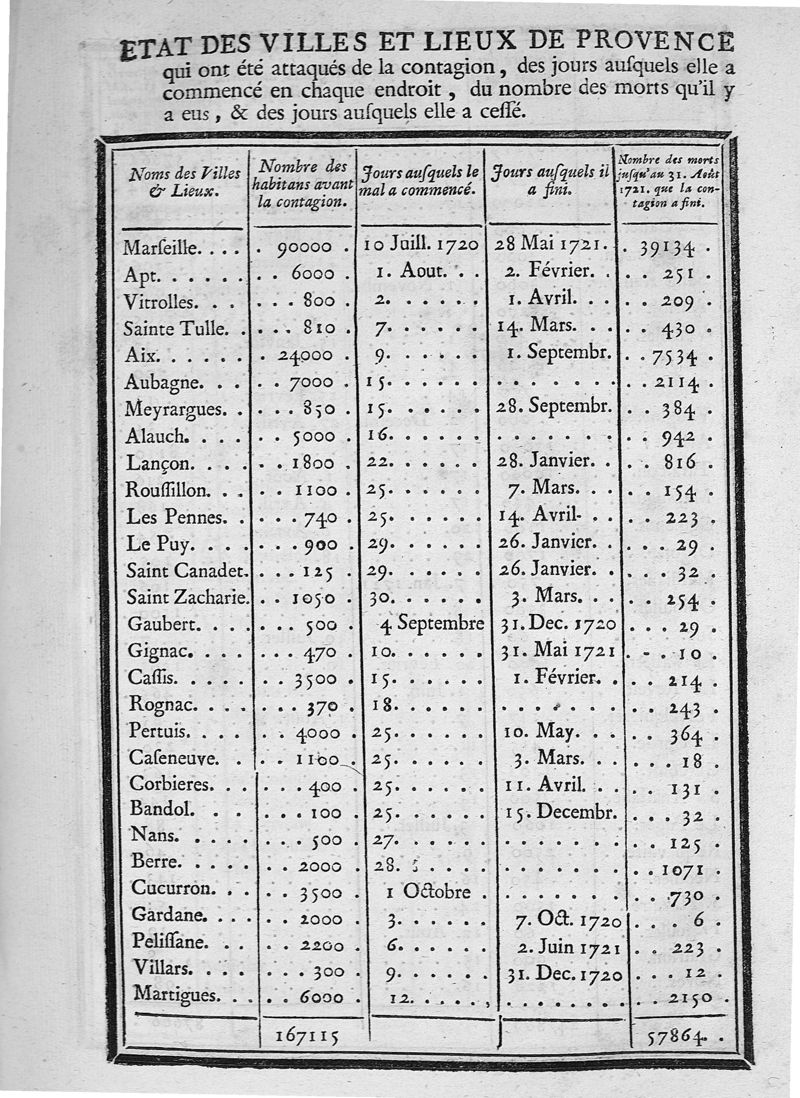 ETAT DES VILLES ET LIEUX DE PROVENCE
qui ont été attaqués de la contagion, des jours auſquels elle a
commencé en chaque endroit, du nombre des morts qu'il y
a eus, & des jours auſquels elle a ceſſé.
Noms des Villes
& Lieux.
Nombre des
habitans avant
la contagion.
Jours auſquels le
mal a commencé.
Jours auſquels il
a fini.
Nombre des morts
juſqu'au 31. Août
1721. que la con-
tagion a fini.
Marſeille. . . . . 90000 . 10 Juill. 1720 28 Mai 1721. . 39134 .
Apt. . . . . . . . . 6000 . 1. Aout. . . 2. Février. . . . 251 .
Vitrolles. . . . . . 800 . 2. . . . . . 1. Avril. . . . . 209 .
Sainte Tulle. . . . . 810 . 7. . . . . . 14. Mars. . . . . 430 .
Aix. . . . . . . . 24000 . 9. . . . . . 1. Septembr. . . 7534 .
Aubagne. . . . . . 7000 . 15. . . . . . . . . . . . . . 2114 .
Meyrargues. . . . . 850 . 15. . . . . . 28. Septembr. . . 384 .
Alauch. . . . . . 5000 . 16. . . . . . . . . . . . . . 942 .
Lançon. . . . . . 1800 . 22. . . . . . 28. Janvier. . . . 816 .
Rouſſillon. . . . . 1100 . 25. . . . . . 7. Mars. . . . . 154 .
Les Pennes. . . . . 740 . 25. . . . . . 14. Avril- . . . . 223 .
Le Puy. . . . . . . 900 . 29. . . . . . 26. Janvier. . . . 29 .
Saint Canadet. . . . 125 . 29. . . . . . 26. Janvier. . . . 32 .
Saint Zacharie. . . 1050 . 30. . . . . . 3. Mars. . . . . 254 .
Gaubert. . . . . . . 500 . 4 Septembre 31. Dec. 1720 . . . 29 .
Gignac. . . . . . . 470 . 10. . . . . . 31. Mai 1721 . - . 10 .
Caſſis. . . . . . . 3500 . 15. . . . . . 1. Février. . . . 214 .
Rognac. . . . . . . 370 . 18. . . . . . . . . . . . . . 243 .
Pertuis. . . . . . 4000 . 25. . . . . . 10. May. . . . . 364 .
Caſeneuve. . . . . 1100 . 25. . . . . . 3. Mars. . . . . . 18 .
Corbieres. . . . . . 400 . 25. . . . . . 11. Avril. . . . . 131 .
Bandol. . . . . . 100 . 25. . . . . . 15. Decembr. . . . 32 .
Nans. . . . . . . 500 . 27. . . . . . . . . . . . . . 125 .
Berre. . . . . . . 2000 . 28. . . . . . . . . . . . . . 1071 .
Cucurron. . . . . 3500 . 1 Octobre . . . . . . . . . . 730 .
Gardane. . . . . . 2000 . 3. . . . . . 7. Oct. 1720 . . . 6 .
Peliſſane. . . . . 2200 . 6. . . . . . 2. Juin 1721 . . 223 .
Villars. . . . . . . 300 . 9. . . . . . 31. Dec. 1720 . . . 12 .
Martigues. . . . . 6000 . 12. . . . . . . . . . . . . . 2150 .
167115 57864. .